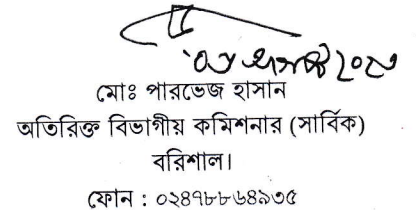 মোঃ পারভেজ হাসান
অতিরিক্ত বিভাগীয় কমিশনার (সার্বিক)
বরিশাল।
ফোন : ০২৪৭৮৮৬৪৯৩৫